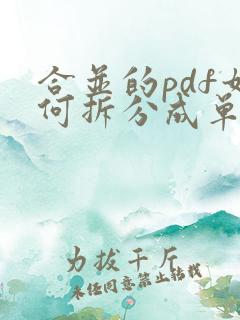 合并的pdf如
何拆分成单
力拔千斤
未经同意禁止转载